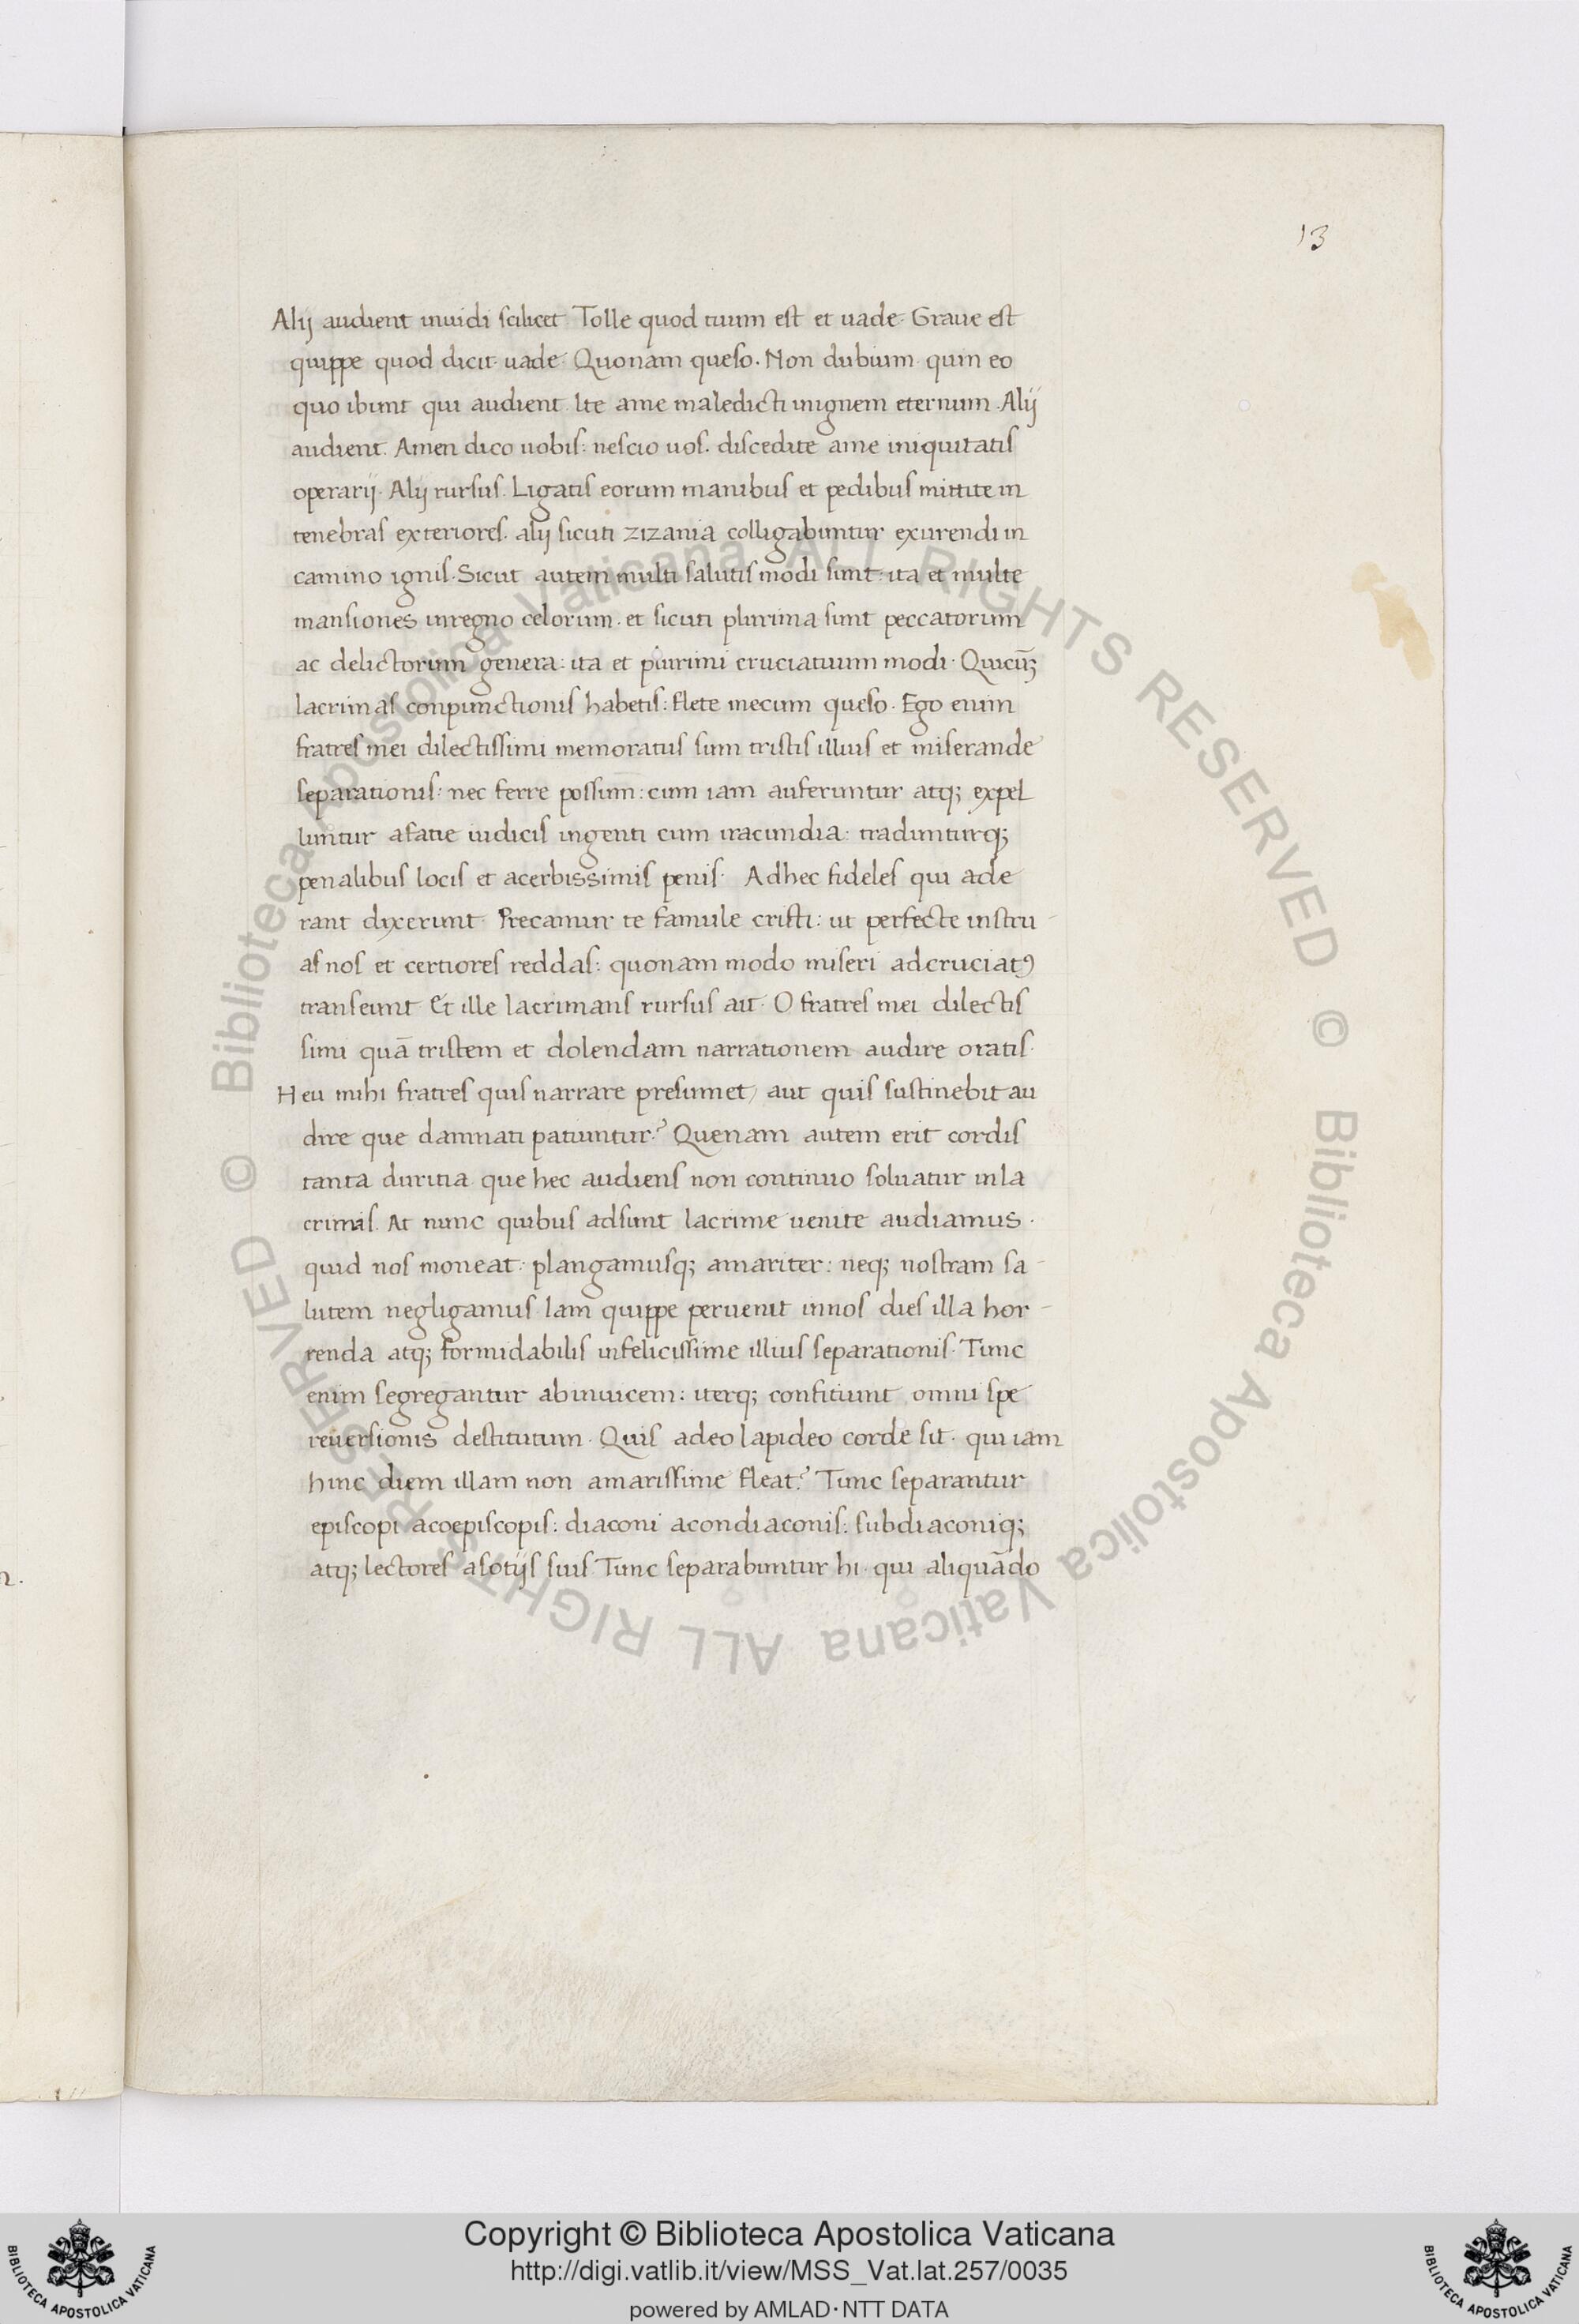 13
Alij audient inuidi scilicet Tolle quod tuum est et uade. Graue est
quippe quod dicit uade. Quonam queso. Non dubium quin eo
quo ibunt qui audient. Ite ame maledicti inignem eternum. Alij
audient. Amen dico uobis: nescio uos. discedite ame iniquitatis
operarij. Alij rursus. Ligatis eorum manibus et pedibus mittite in
tenebras exteriores. alij sicuti zizania colligabuntur exurendi in
camino ignis. Sicut autem multi salutis modi sunt: ita et multe
mansiones inregno celorum. et sicuti plurima sunt peccatorum
ac delictorum genera: ita et plurimi cruciatuum modi. Quicūꝫ
lacrimas conpunctionis habetis: flete mecum queso. Ego enim
fratres mei dilectissimi memoratus sum tristis illius et miserande
separationis: nec ferre possum: cum iam auferuntur atqꝫ expel
luntur afatie iudicis ingenti cum iracundia: traduntur qꝫ
penalibus locis et acerbissimis penis. Adhec fideles qui ade
rant dixerunt. Precamur te famule cristi: ut perfecte instru-
as nos et certiores reddas: quonam modo miseri adcruciatꝰ
transeunt Et ille lacrimans rursus ait. O fratres mei dilectis
simi quā tristem et dolendam narrationem audire oratis.
Heu mihi fratres quis narrare presumet/ aut quis sustinebit au
dire que damnati patiuntur? Quenam autem erit cordis
tanta duritia que hec audiens non continuo soluatur inla
crimas. At nunc quibus adsunt lacrime uenite audiamus.
quid nos moneat: plangamusqꝫ amariter: neqꝫ nostram sa-
lutem negligamus. Iam quippe peruenit innos dies illa hor-
renda atqꝫ formidabilis infelicissime illius separationis. Tunc
enim segregantur abinuicem: iterqꝫ confitiunt omni spe
reuersionis destitutum. Quis adeo lapideo corde sit. qui iam
hinc diem illam non amarissime fleat? Tunc separantur
episcopi acoepiscopis: diaconi acondiaconis: subdiaconiqꝫ
atqꝫ lectores asotijs suis Tunc separabuntur hi. qui aliquādo
© Biblioteca Apostolica Vaticana ALL RIGHTS RESERVED © Biblioteca Apostolica Vaticana ALL RIGHTS RESERVED
Copyright © Biblioteca Apostolica Vaticana
http://digi.vatlib.it/view/MSS_Vat.lat.257/0035
powered by AMLAD·NTT DATA
BIBLIOTECA APOSTOLICA VATICANA
BIBLIOTECA APOSTOLICA VATICANA